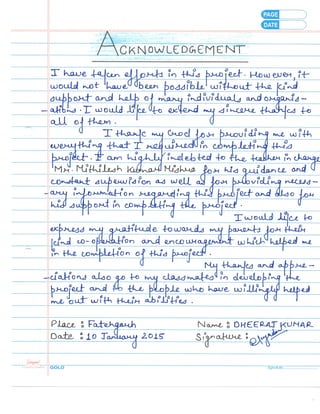 PAGE
DATE
ACKNOWLEDGEMENT
I have taken efforts in this project. However, it
would not have been possible without the kind
support and help of many individuals and organis-
-ations. I would like to extend my sincere thanks to
all of them.
I thank my God for providing me with
everything that I required in completing this
project. I am highly indebted to the teacher in charge
Mr. Mithilesh Kumar Mishra for his guidance and
constant supervision as well as for providing necess-
-ary information regarding this project and also for
his support in completing the project.
I would like to
express my gratitude towards my parents for their
kind co-operation and encouragement which helped me
in the completion of this project.
My thanks and appre-
-ciations also go to my classmates in developing the
project and to the people who have willingly helped
me out with their abilities.
Place : Fatehgarh Name : DHEERAJ KUMAR
Date : 10 January 2015 Signature :
GOLD